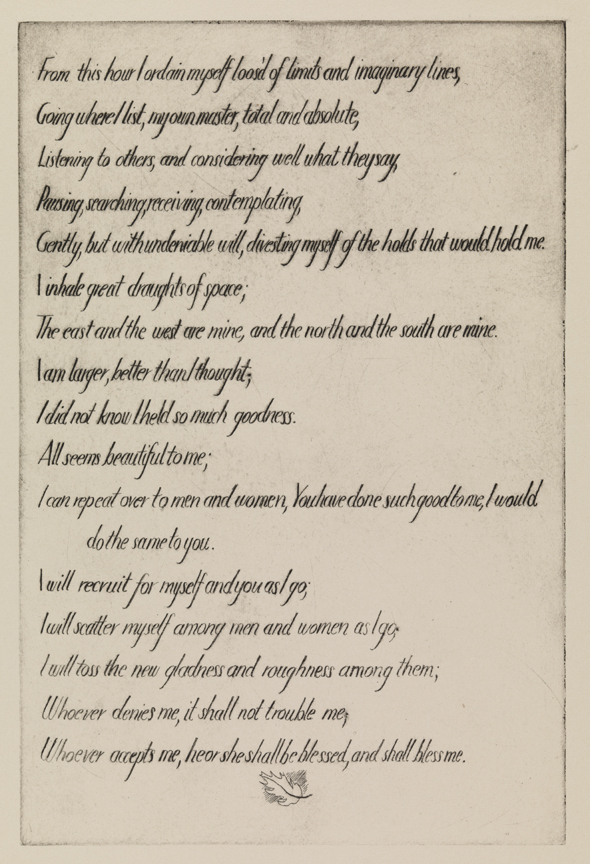 From this hour I ordain myself loos'd of limits and imaginary lines,
Going where I list, my own master, total and absolute,
Listening to others, and considering well what they say,
Pausing, searching, receiving, contemplating,
Gently, but with undeniable will, divesting myself of the holds that would hold me.
I inhale great draughts of space;
The east and the west are mine, and the north and the south are mine.
I am larger, better than I thought;
I did not know I held so much goodness.
All seems beautiful to me;
I can repeat over to men and women, You have done such good to me, I would
do the same to you.
I will recruit for myself and you as I go;
I will scatter myself among men and women as I go;
I will toss the new gladness and roughness among them;
Whoever denies me, it shall not trouble me;
Whoever accepts me, he or she shall be blessed, and shall bless me.